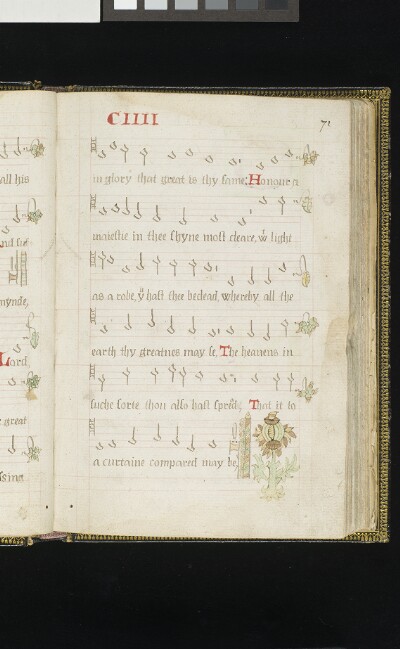 all his
mynde,
Lord
great
CIIII
71
in glory that great is thy fame, Honour a
maiestie in thee shyne most cleare, wt light
as a robe, yu hast thee beclead, whereby all the
earth thy greatnes may se, The heauens in
suche sorte thou also hast spred, That it to
a curtaine compared may be,